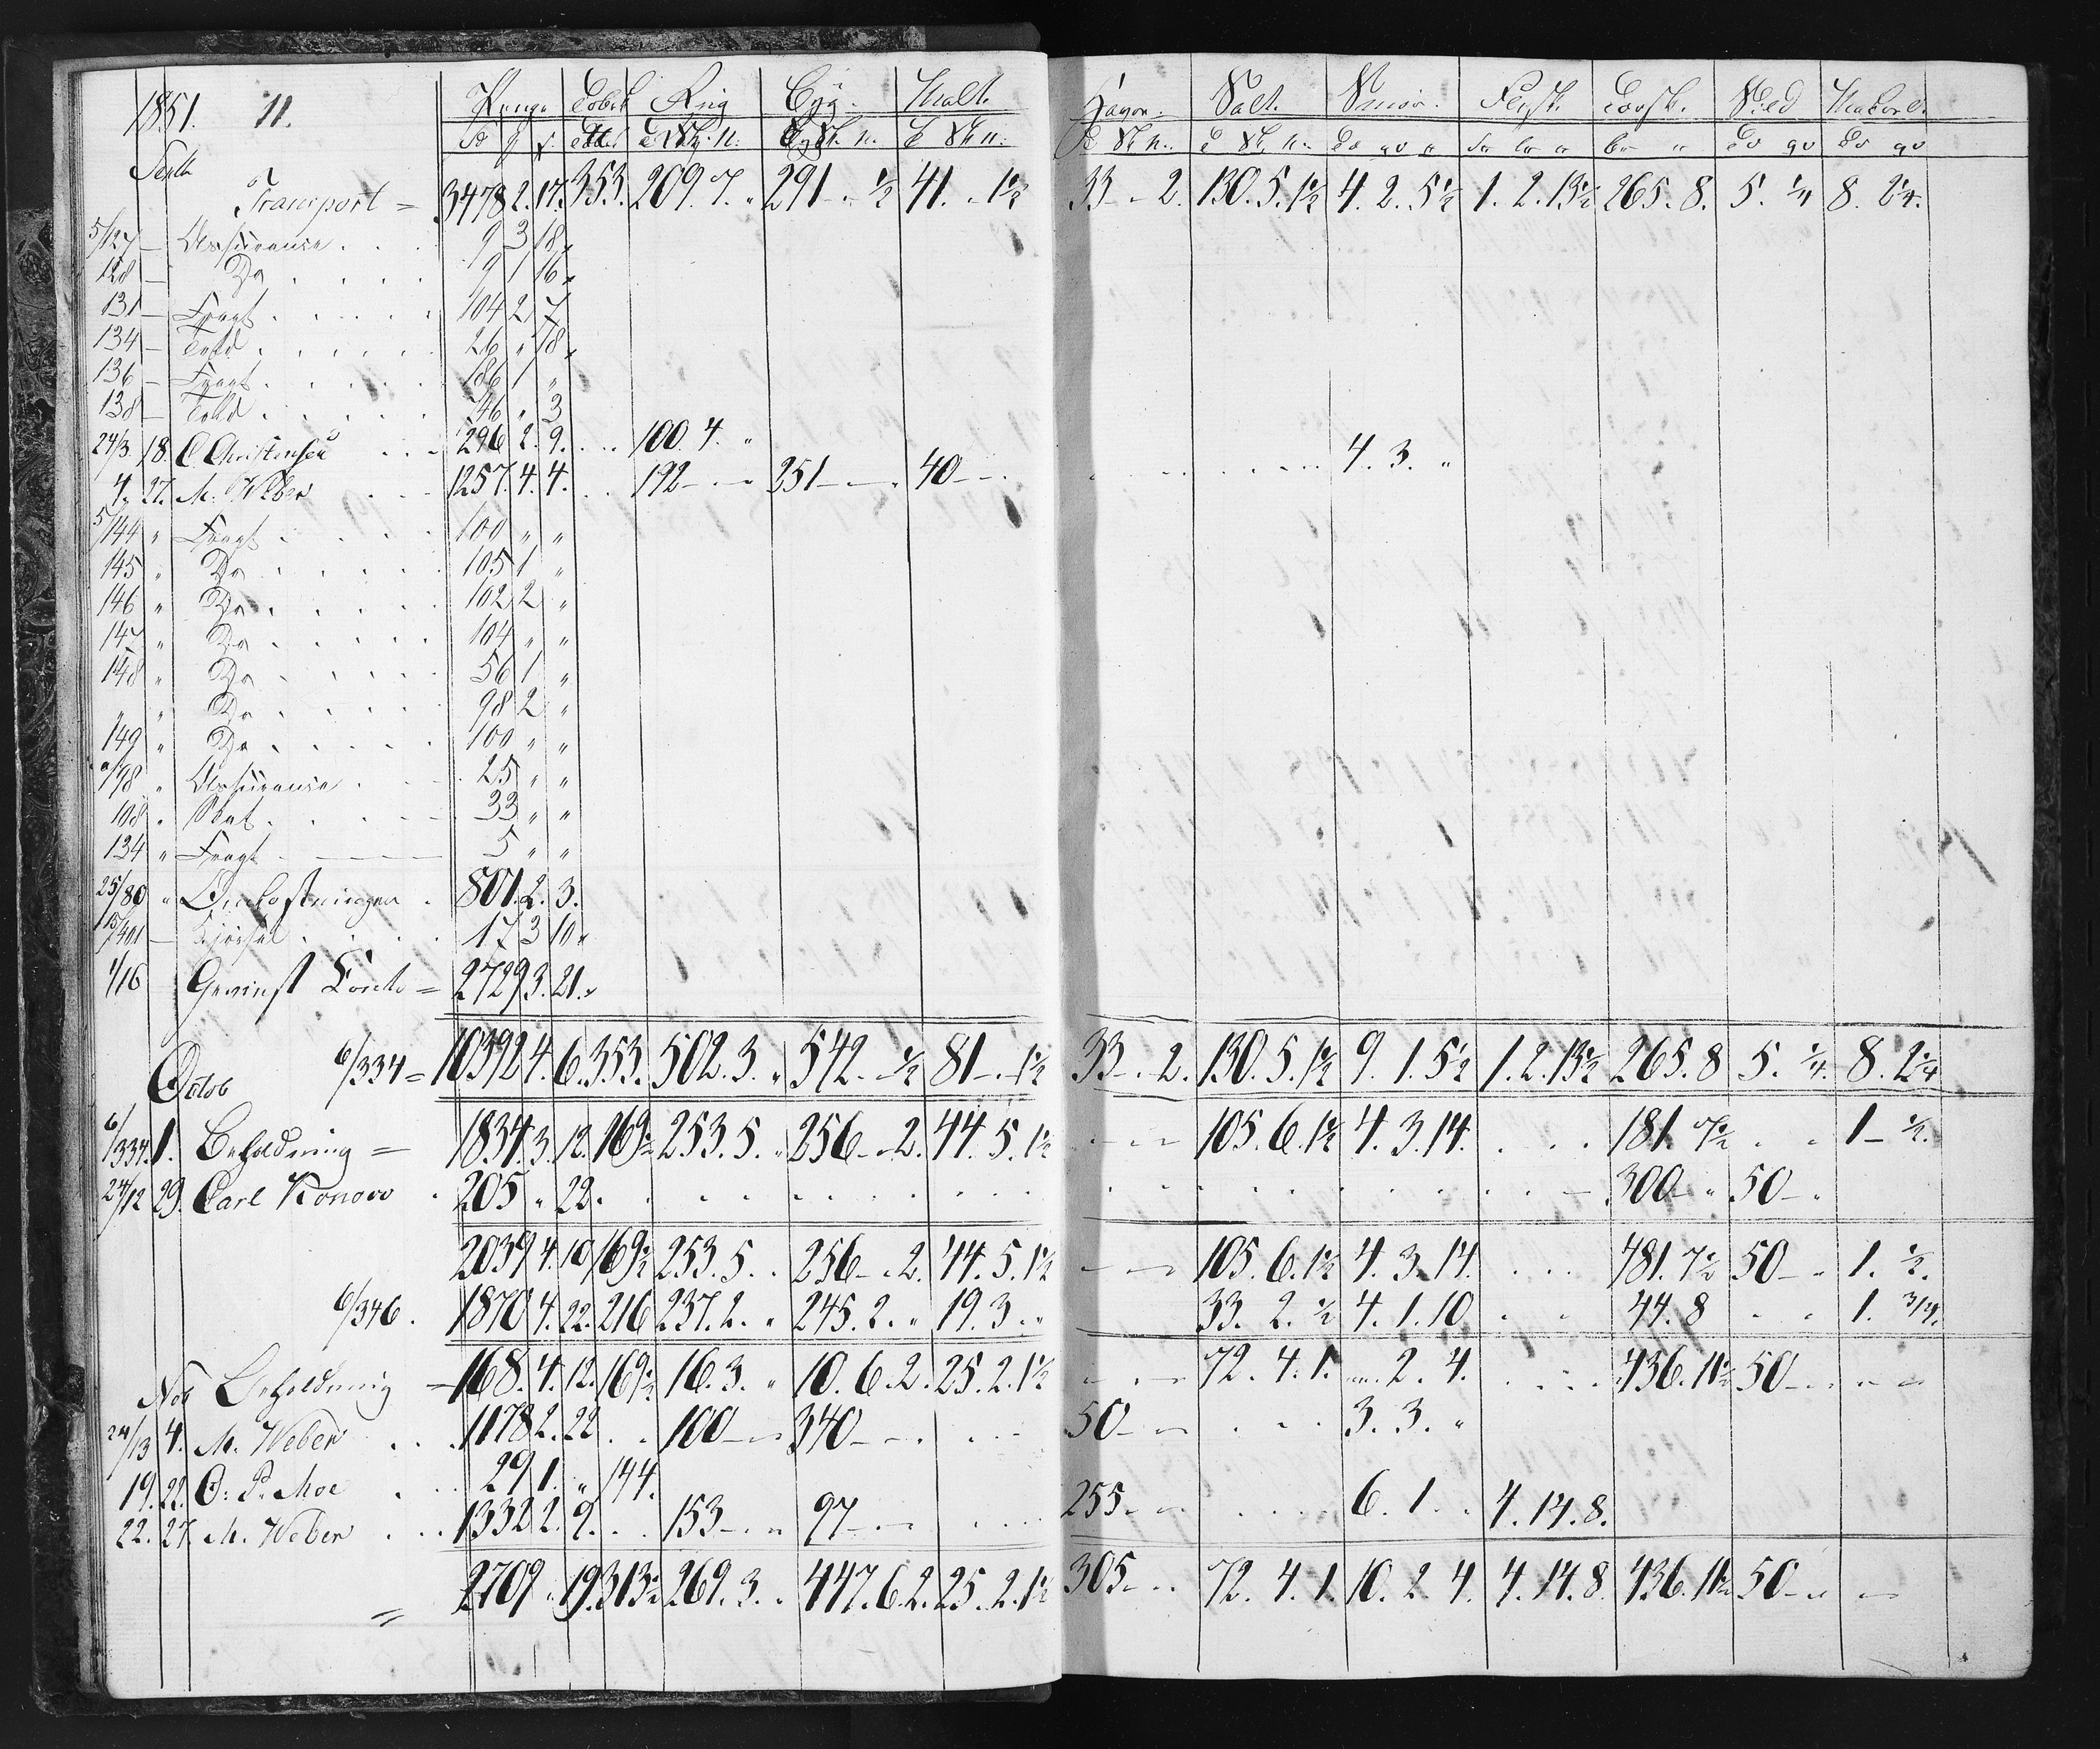 1851. 11. Penge Tobak Rug Byg. Malt. Havre. Salt. Smør. Flesk. Törfsk. Sild Makrel.
Septb
Transport = 3478 2. 17. 353. 209. 7. „ 291 - „ ½ 41. „ 1½ 33 - „ 2. 130. 5. 1½ 4. 2. 5½ 1. 2. 13½ 265. 8. 5. ¼ 8. 2¼.
5/127 — Assurance . . 9 3 18
128 — Do . . . . 9 1 16
131 — Fragt . . . . . 104 2 7
134 — Told . . . . . 26 „ 18
136 — Fragt . . . . . 186 1 „
138 — Told . . . . . 46 „ 3
24/3. 18. C. Christensen . . . 296 2. 9. . . . 100. 4. „ 4. 3. „
4. 27. M. Weber . . . 1257. 4. 4. . . 192 - . - 251 - . - 40 - . -
5/144 „ Fragt . . . . 100 „ „
145 „ Do . . . . . 105 1 „
146 „ Do . . . . . 102 2 „
147 „ Do . . . . . 104 „ „
148 „ Do . . . . . 56 1 „
„ „ Do . . . . . 98 2 „
149 „ Do . . . . . 100 „ „
98 „ Assurance . . . 25 „ „
108 „ . . . . . 33 „ „
134 „ Fragt . - - - 5 „ „
25/80 „ Omkostninger . 801. 2. 3.
15/401 — Kjørsel . . . . 17 3 10
1/16 Gevinst Conto = 2729 3. 21.
6/334 = 10392 4. 6. 353. 502. 3. „ 542. - ½ 81 - . 1½ 33 - . 2. 130. 5. 1½ 9. 1. 5½ 1. 2. 13½ 265. 8 5. ¼. 8. 2¼
Octob
6/334. 1. Beholdning = 1834. 3. 12. 169½ 253. 5. „ 256 - . 2. 44. 5. 1½ - - - 105. 6. 1½ 4. 3. 14. . . . 181. 7½ . . 1 - ½.
24/12 29. Carl Konow . 205 „ 22. . . . . . . . . . . 300 - „ 50 - .
2039 4. 10 169½ 253. 5. . 256 - . 2. 44. 5. 1½ - - - 105. 6. 1½ 4. 3. 14. . . . 481. 7½ 50 - . 1. ½.
6/346. 1870 4. 22. 216 237. 2. „ 245. 2. „ 19. 3. „ 33. 2. ½ 4. 1. 10 . . 44. 8 . . 1. 3/4.
Nov Beholdning = 168. 4. 12. 169½ 16. 3. „ 10. 6. 2. 25. 2. 1½ - - - 72. 4. 1. „ 2. 4. . . . 436. 11½ 50 - . - -
24/13 4. M. Weber . . . 1178 2. 22 . . 100 - „ 340 - . . . - 50 - - . . . 3. 3. „
19. 22. O: P. Moe . . . 29 1. „ 144.
22. 27. M. Weber . . . 1332 2. 9. . . 153 - . „ 97 - . - . . . 255 - - . . . . 6. 1 . . 4. 14. 8.
= 2709 „ 19. 313½ 269. 3. . 447. 6. 2. 25. 2. 1½ 305 - . . 72. 4. 1. 10. 2 4. 4. 14. 8. 436. 11½ 50 - „ -